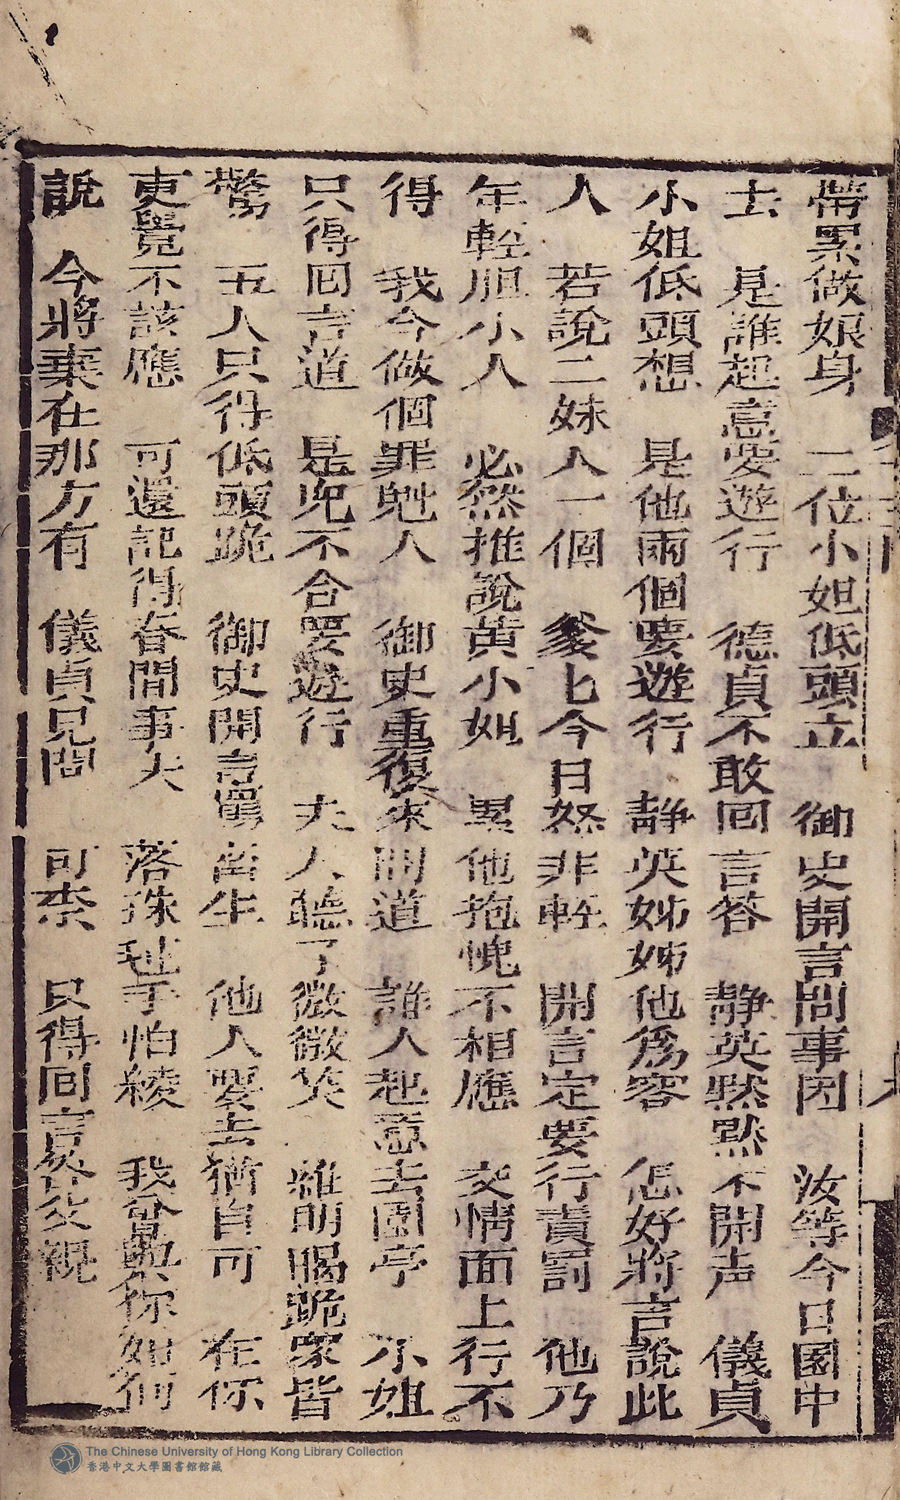 帶累做娘身　二位小姐低頭立　御史開言問事因　汝等今日園中
去　是誰起意要遊行　德貞不敢回言答　静英默默不開声　儀貞
小姐低頭想　是他兩個要遊行　静英姊姊他為客　怎好將言說此
人　若說二妹人一個　爹匕今日怒非輕　開言定要行責罰　他乃
年輕胆小人　必然推說黃小姐　累他抱愧不相應　交情面上行不
得　我今做個罪魁人　御史重復來問道　誰人起意去園亭　小姐
只得囬言道　是兒不合要遊行　夫人聽了微微笑　雖明賜跪衆皆
驚　五人只得低頭跪　御史開言罵　生　他人要去猶自可　在你
更覺不該應　可還記得春間事　夫　落珠　手怕綾　我曾與你如何
說　今將棄在那方有　儀貞見問　可柰　只得囬言答父親
The Chinese University of Hong Kong Library Collection
香港中文大學圖書館館藏